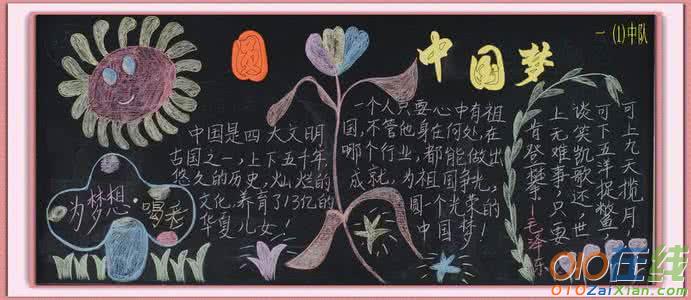 圆 中国梦
一(1)中队
中国是四大文明
古国之一,上下五千年
悠久的历史,灿烂的
文化,养育了13亿的
华夏儿女!
为梦想·喝彩
一个人只要心中有祖
国,不管他身在何处,在
哪个行业,都能做出
成就,为祖国争光,
圆一个光荣的
中国梦!
可上九天揽月,
可下五洋捉鳖,
谈笑凯歌还,世
上无难事,只要
肯登攀—毛泽东
010在线
010ZaiXian.com